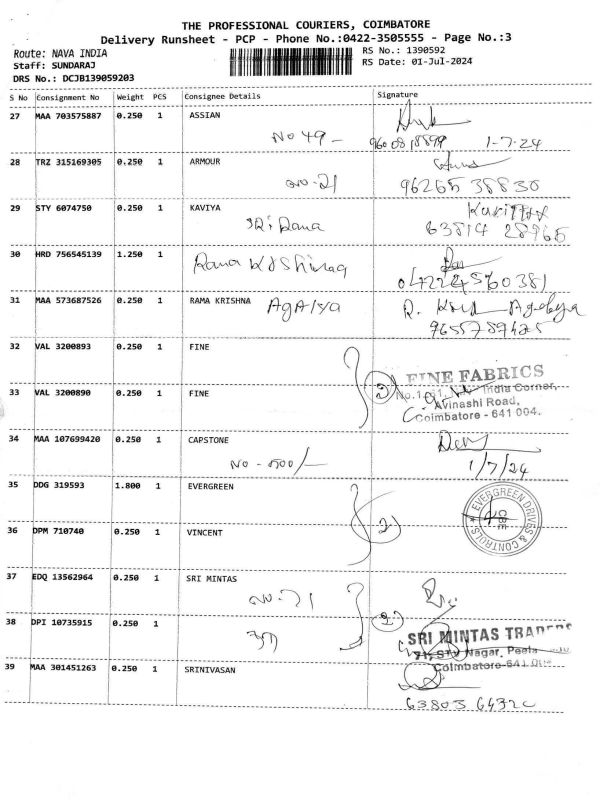 THE PROFESSIONAL COURIERS, COIMBATORE
Delivery Runsheet - PCP - Phone No.:0422-3505555 - Page No.:3
Route: NAVA INDIA
RS No.: 1390592
Staff: SUNDARAJ
RS Date: 01-Jul-2024
DRS No.: DCJB139059203
S No Consignment No Weight PCS Consignee Details Signature
27 MAA 703575887 0.250 1 ASSIAN
No 49
1-7-24
28 TRZ 315169305 0.250 1 ARMOUR
no-21 96265 38830
29 STY 6074750 0.250 1 KAVIYA
63814 28965
30 HRD 756545139 1.250 1
31 MAA 573687526 0.250 1 RAMA KRISHNA
32 VAL 3200893 0.250 1 FINE
FINE FABRICS
India Corner,
33 VAL 3200890 0.250 1 FINE
2
Avinashi Road,
Coimbatore - 641 004.
34 MAA 107699420 0.250 1 CAPSTONE
1/7/24
35 DDG 319593 1.800 1 EVERGREEN
EVERGREEN DRIVES & CONTROLS
CBE
36 DPM 710740 0.250 1 VINCENT
2
37 EDQ 13562964 0.250 1 SRI MINTAS
no-71
38 DPI 10735915 0.250 1
2
SRI MINTAS TRADERS
71, STV Nagar,
Coimbatore-641
39 MAA 301451263 0.250 1 SRINIVASAN